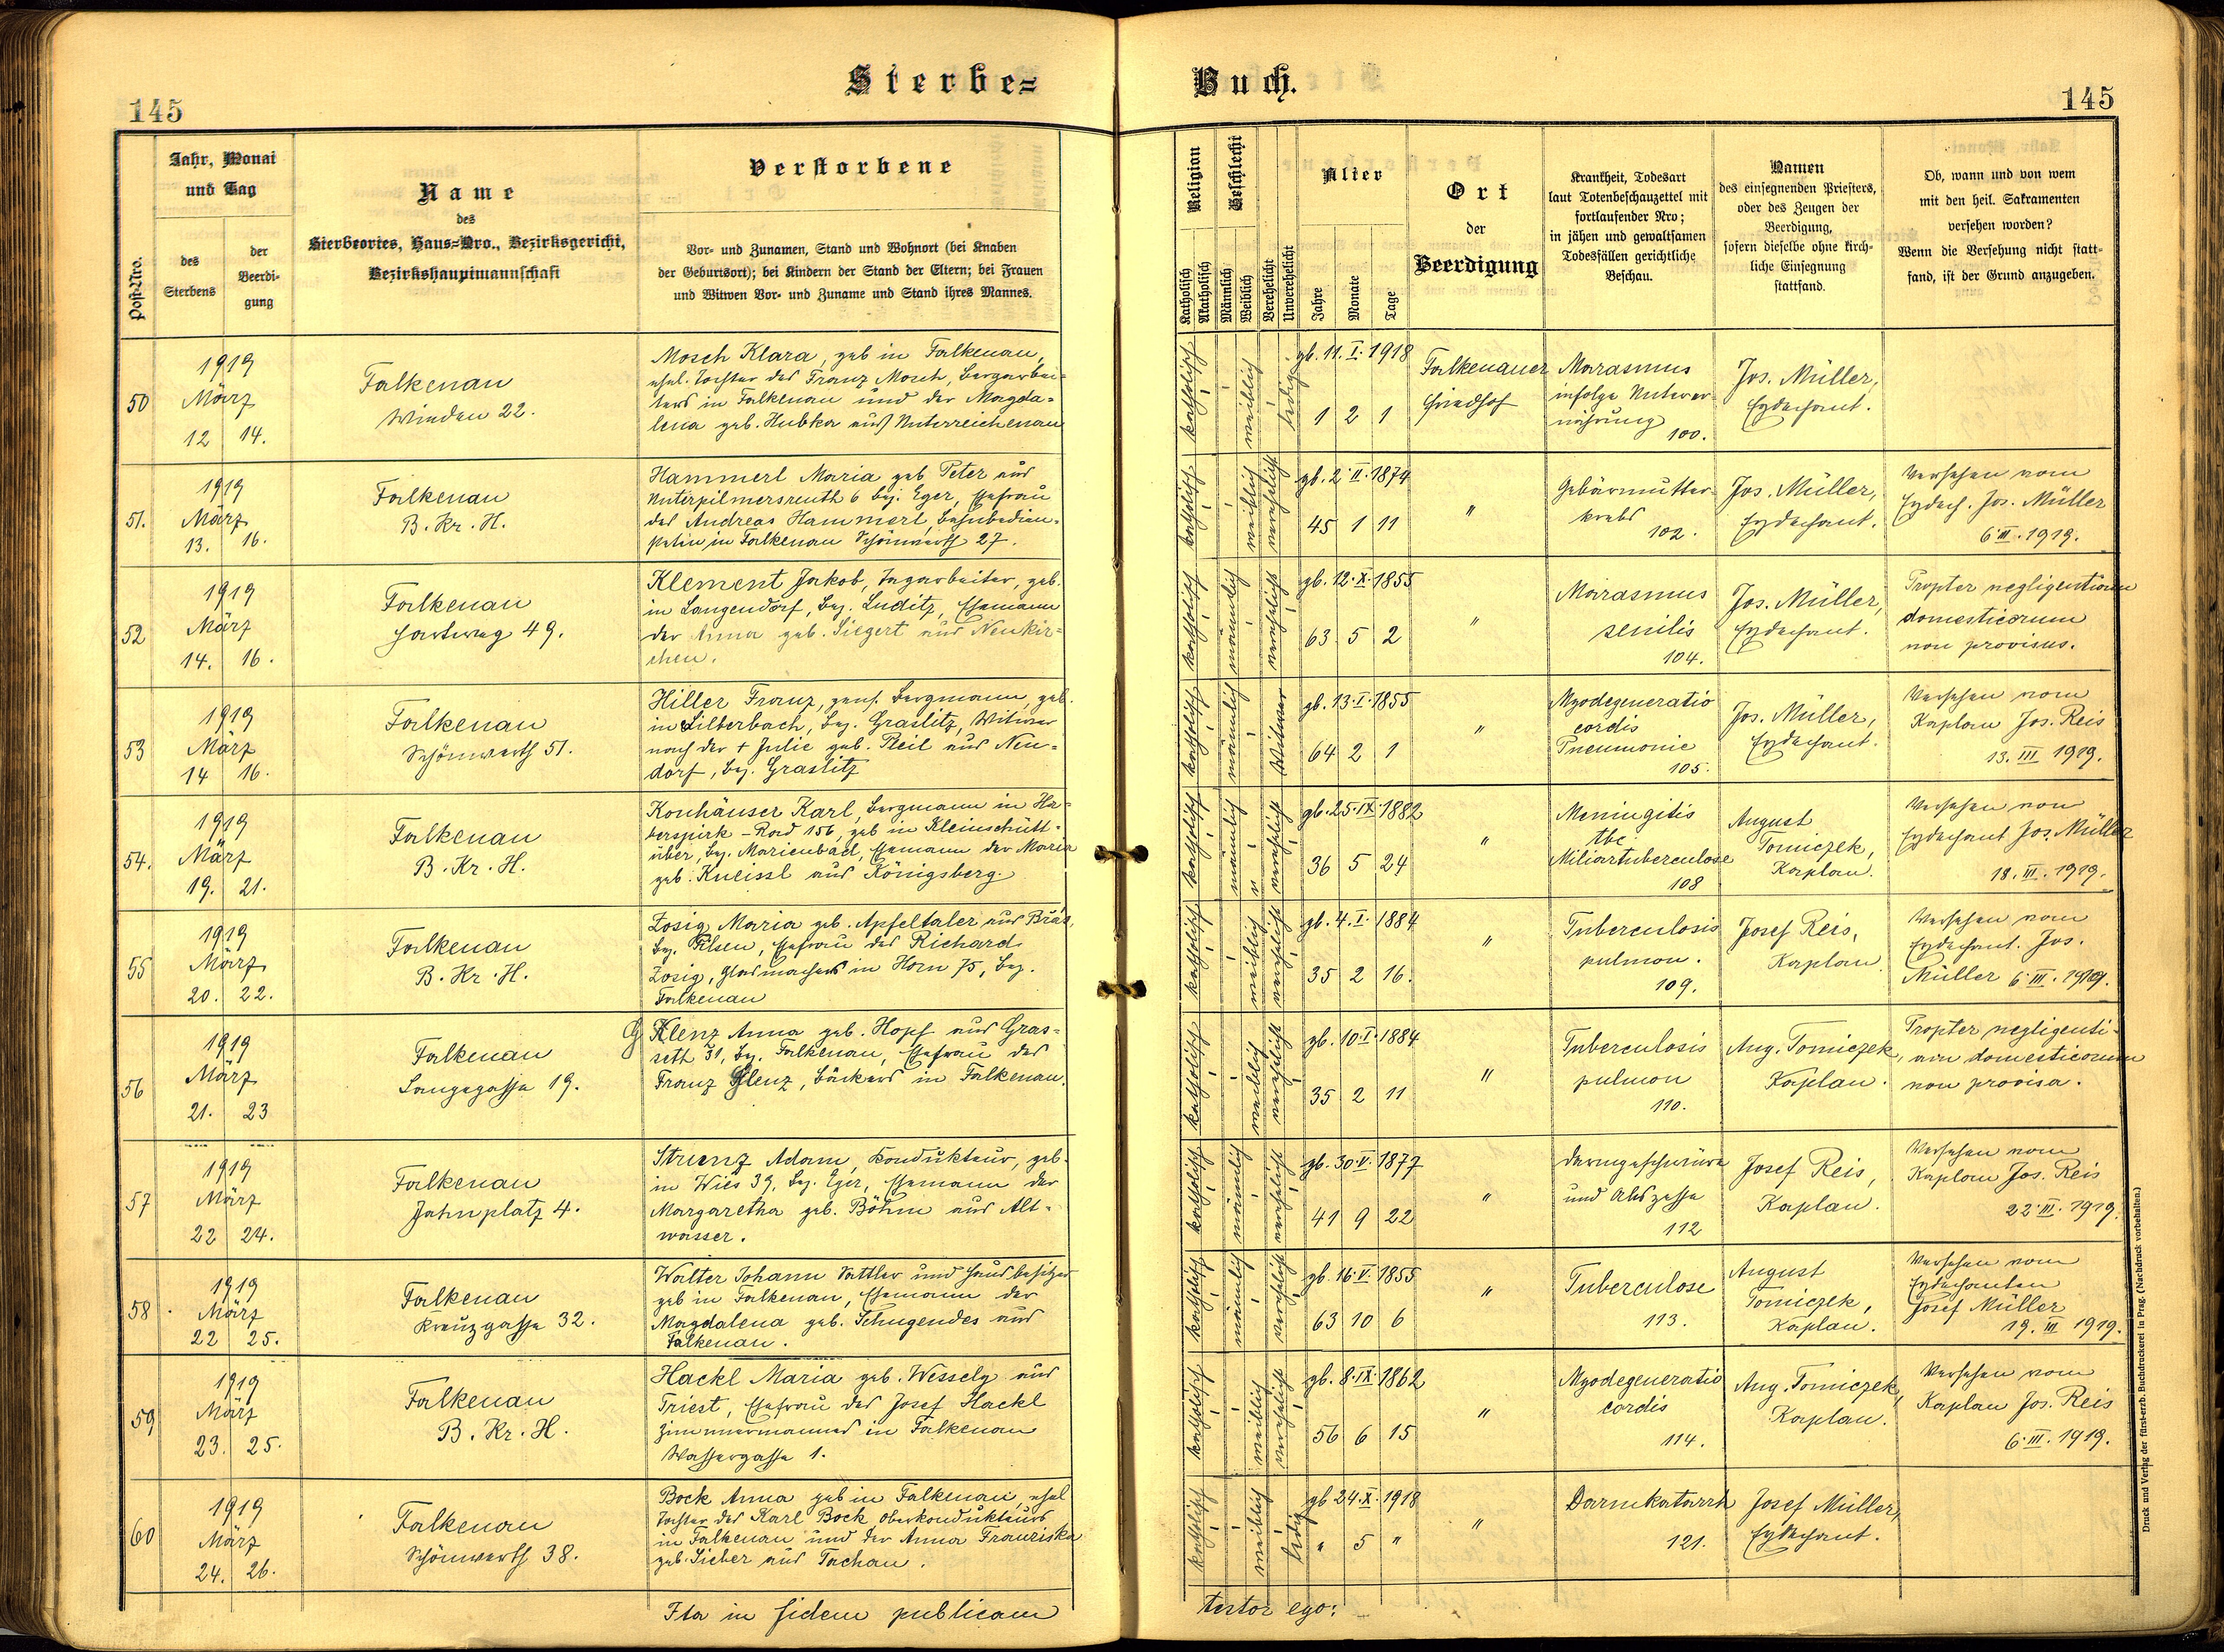 Sterbe=
Buch.
145
145
Post-Nro.
Jahr, Monat
und Tag
des
Sterbens
der
Beerdi-
gung
Name
des
Sterbeortes, Haus=Nro., Bezirksgericht,
Bezirkshauptmannschaft
Verstorbene
Vor- und Zunamen, Stand und Wohnort (bei Knaben
der Geburtsort); bei Kindern der Stand der Eltern; bei Frauen
und Witwen Vor- und Zuname und Stand ihres Mannes.
Religion
Katholisch
Akatholisch
Geschlecht
Männlich
Weiblich
Verehelicht
Unverehelicht
Alter
Jahre
Monate
Tage
Ort
der
Beerdigung
Krankheit, Todesart
laut Totenbeschauzettel mit
fortlaufender Nro;
in jähen und gewaltsamen
Todesfällen gerichtliche
Beschau.
Namen
des einsegnenden Priesters,
oder des Zeugen der
Beerdigung,
sofern dieselbe ohne kirch-
liche Einsegnung
stattfand.
Ob, wann und von wem
mit den heil. Sakramenten
versehen worden?
Wenn die Versehung nicht statt-
fand, ist der Grund anzugeben.
50
1919
März
12 14.
Falkenau
Winden 22.
Mosch Klara, geb in Falkenau,
ehel. Tochter des Franz Mosch, Bergarbei=
ters in Falkenau und der Magda=
lena geb. Hubka aus Unterreichenau
katholisch
weiblich
ledig
gb. 11. I. 1918
1 2 1
Falkenauer
Friedhof
Marasmus
infolge Unterer
nährung
100.
Jos. Müller,
Erzdechant.
51.
1919
März
13. 16.
Falkenau
B. Kr. H.
Hammerl Maria geb Peter aus
Unterpilmersreuth 6 bez. Eger, Ehefrau
des Andreas Hammerl, Bahnbedien=
steten in Falkenau Schönwerth 27.
katholisch
weiblich
verehelicht
gb. 2. II. 1874
45 1 11
"
Gebärmutter
krebs
102.
Jos. Müller,
Erzdechant.
Versehen vom
Erzdech. Jos. Müller
6. III. 1919.
52
1919
März
14. 16.
Falkenau
Hartweg 49.
Klement Jakob, Tagarbeiter, geb.
in Langendorf, bez. Luditz, Ehemann
der Anna geb. Siegert aus Neukir=
chen.
katholisch
männlich
verehelicht
gb. 12. X. 1855
63 5 2
"
Marasmus
senilis
104.
Jos. Müller,
Erzdechant.
Propter negligentiam
domesticorum
non provisus.
53
1919
März
14 16.
Falkenau
Schönwerth 51.
Hiller Franz, pens. Bergmann, geb.
in Silberbach, bez. Graslitz, Witwer
nach der + Julie geb. Reil aus Neu=
dorf, bez. Graslitz
katholisch
männlich
Witwer
gb. 13. I. 1855
64 2 1
"
Myodegeneratio
cordis
Pneumonie
105.
Jos. Müller,
Erzdechant.
Versehen vom
Kaplan Jos. Reis
13. III 1919.
54.
1919
März
19. 21.
Falkenau
B. Kr. H.
Konhäuser Karl, Bergmann in Ha=
berspirk - Rad 156, geb in Kleinschütt=
über, bez. Marienbad, Ehemann der Maria
geb. Kneissl aus Königsberg.
katholisch
männlich
verehelicht
gb. 25. IX. 1882
36 5 24
"
Meningitis
tbc
Miliartuberculose
108
August
Tomiczek,
Kaplan.
Versehen von
Erzdechant Jos. Müller
18. III. 1919.
55
1919
März
20. 22.
Falkenau
B. Kr. H.
Zosig Maria geb. Apfeltaler aus Břas,
bez. Pilsen, Ehefrau des Richard
Zosig, Glasmachers in Horn 75, bez.
Falkenau
katholisch
weiblich
verehelicht
gb. 4. I. 1884
35 2 16.
"
Tuberculosis
pulmon.
109.
Josef Reis,
Kaplan.
Versehen vom
Erzdechant. Jos.
Müller 6. III. 1919.
56
1919
März
21. 23
Falkenau
Langegasse 19.
G Klenz Anna geb. Hopf aus Gras=
seth 31, bez. Falkenau, Ehefrau des
Franz Glenz, Bäckers in Falkenau.
katholisch
weiblich
verehelicht
gb. 10. I. 1884
35 2 11
"
Tuberculosis
pulmon
110.
Aug. Tomiczek,
Kaplan.
Propter negligenti-
am domesticorum
non provisa.
57
1919
März
22 24.
Falkenau
Jahnplatz 4.
Strunz Adam, Kondukteur, geb.
in Wies 39, bez. Eger, Ehemann der
Margaretha geb. Böhm aus Alt=
wasser.
katholisch
männlich
verehelicht
gb. 30. V. 1877
41 9 22
"
Darmgeschwüre
und Abszesse
112
Josef Reis,
Kaplan.
Versehen vom
Kaplan Jos. Reis
22. III. 1919.
58
1919
März
22 25.
Falkenau
Kreuzgasse 32.
Walter Johann Sattler und Hausbesitzer
geb in Falkenau, Ehemann der
Magdalena geb. Schugendes aus
Falkenau.
katholisch
männlich
verehelicht
gb. 16. V. 1855
63 10 6
"
Tuberculose
113.
August
Tomiczek,
Kaplan.
Versehen vom
Erzdechanten
Josef Müller
19. III 1919.
59
1919
März
23. 25.
Falkenau
B. Kr. H.
Hackl Maria geb. Wessely aus
Triest, Ehefrau des Josef Hackl
Zimmermannes in Falkenau
Wassergasse 1.
katholisch
weiblich
verehelicht
gb. 8. IX. 1862
56 6 15
"
Myodegeneratio
cordis
114.
Aug. Tomiczek,
Kaplan.
Versehen vom
Kaplan Jos. Reis
6. III. 1919.
60
1919
März
24. 26.
Falkenau
Schönwerth 38.
Bock Anna geb in Falkenau, ehel
Tochter des Karl Bock Oberkondukteurs
in Falkenau und der Anna Franziska
geb. Sieber aus Tachau.
katholisch
weiblich
ledig
gb 24. X. 1918
" 5 "
"
Darmkatarrh
121.
Josef Müller,
Erzdechant.
Ita in fidem publicam
testor ego:
Druck und Verlag der fürst-erzb. Buchdruckerei in Prag. (Nachdruck vorbehalten.)